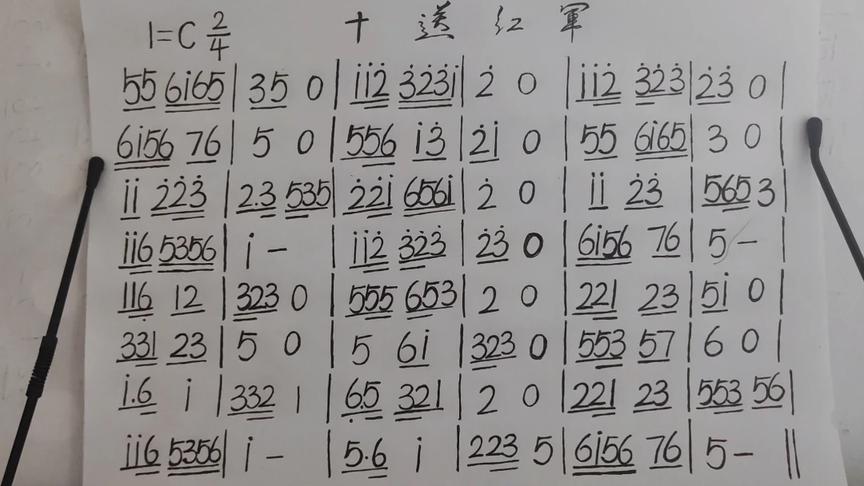 1=C 2/4 十送紅軍
55 6i65 | 35 0 | ii2̇ 3̇2̇3̇i | 2̇ 0 | ii2̇ 3̇2̇3̇ | 2̇3̇ 0 |
6i56 76 | 5 0 | 556 i3̇ | 2̇i 0 | 55 6i65 | 3 0 |
ii 2̇2̇3̇ | 2.3 535 | 2̇2̇i 656i | 2̇ 0 | ii 2̇3̇ | 565 3 |
ii6 5356 | i - | ii2̇ 3̇2̇3̇ | 2̇3̇ 0 | 6i56 76 | 5 - |
116̣ 12 | 323 0 | 555 653 | 2 0 | 221 23 | 5i 0 |
331 23 | 5 0 | 5 6i | 323 0 | 553 57 | 6 0 |
i.6 i | 332 1 | 6̣.5 321 | 2 0 | 221 23 | 553 56 |
ii6 5356 | i - | 5.6 i | 223 5 | 6i56 76 | 5 - ||